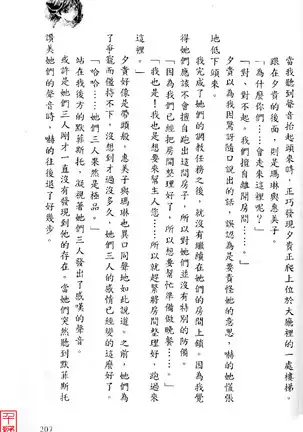 當我聽到聲音抬起頭來時，正巧發現夕貴正爬上位於大廳裡的一處樓梯。
跟在夕貴的後面，則是瑪琳與惠美子。
「為什麼你們……會走出來這裡呢？」
「對、對不起。我們擅自離開房間……」
夕貴以為我因驚訝隨口說出的話，誤認為是要責怪她的意思，嚇的她慌張
地低下頭來。
我完成了她們的調教任務之後，就沒有繼續在她們的房間上鎖。因為我覺
得她們應該不會擅自跑出這間房子，所以對她們並沒有特別的防備。
「因為我們已經把房間整理好了，所以想要幫忙準備做晚餐……」
「我也是！我也是想要來幫主人您……所以就趕緊將房間整理好，跑過來
這裡。」
夕貴好像是帶頭般，惠美子與瑪琳也異口同聲地如此說道。之前，她們為
了爭寵而僵持不下，沒想到才過沒多久，她們三人的感情已經變的這麼好了。
「哈哈……她們三人果然是極品。」
站在我後方的默菲斯托，凝視著她們三人發出了感嘆的聲音。
或許是她們三人剛才一直沒有發現到他的存在。當她們突然聽到默菲斯托
讚美她們的聲音時，嚇的往後退了好幾步。
207